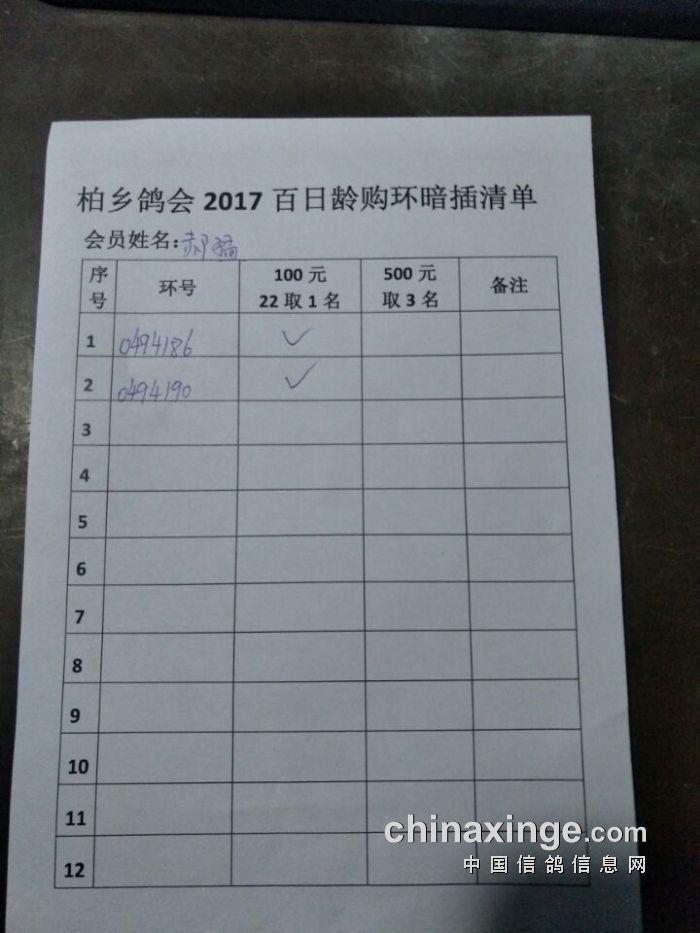 柏乡鸽会 2017 百日龄购环暗插清单
会员姓名：郝
序号 环号 100 元 22 取 1 名 500 元 取 3 名 备注
1 0494186 ✓
2 0494190 ✓
3
4
5
6
7
8
9
10
11
12
chinaxinge.com
中国信鸽信息网